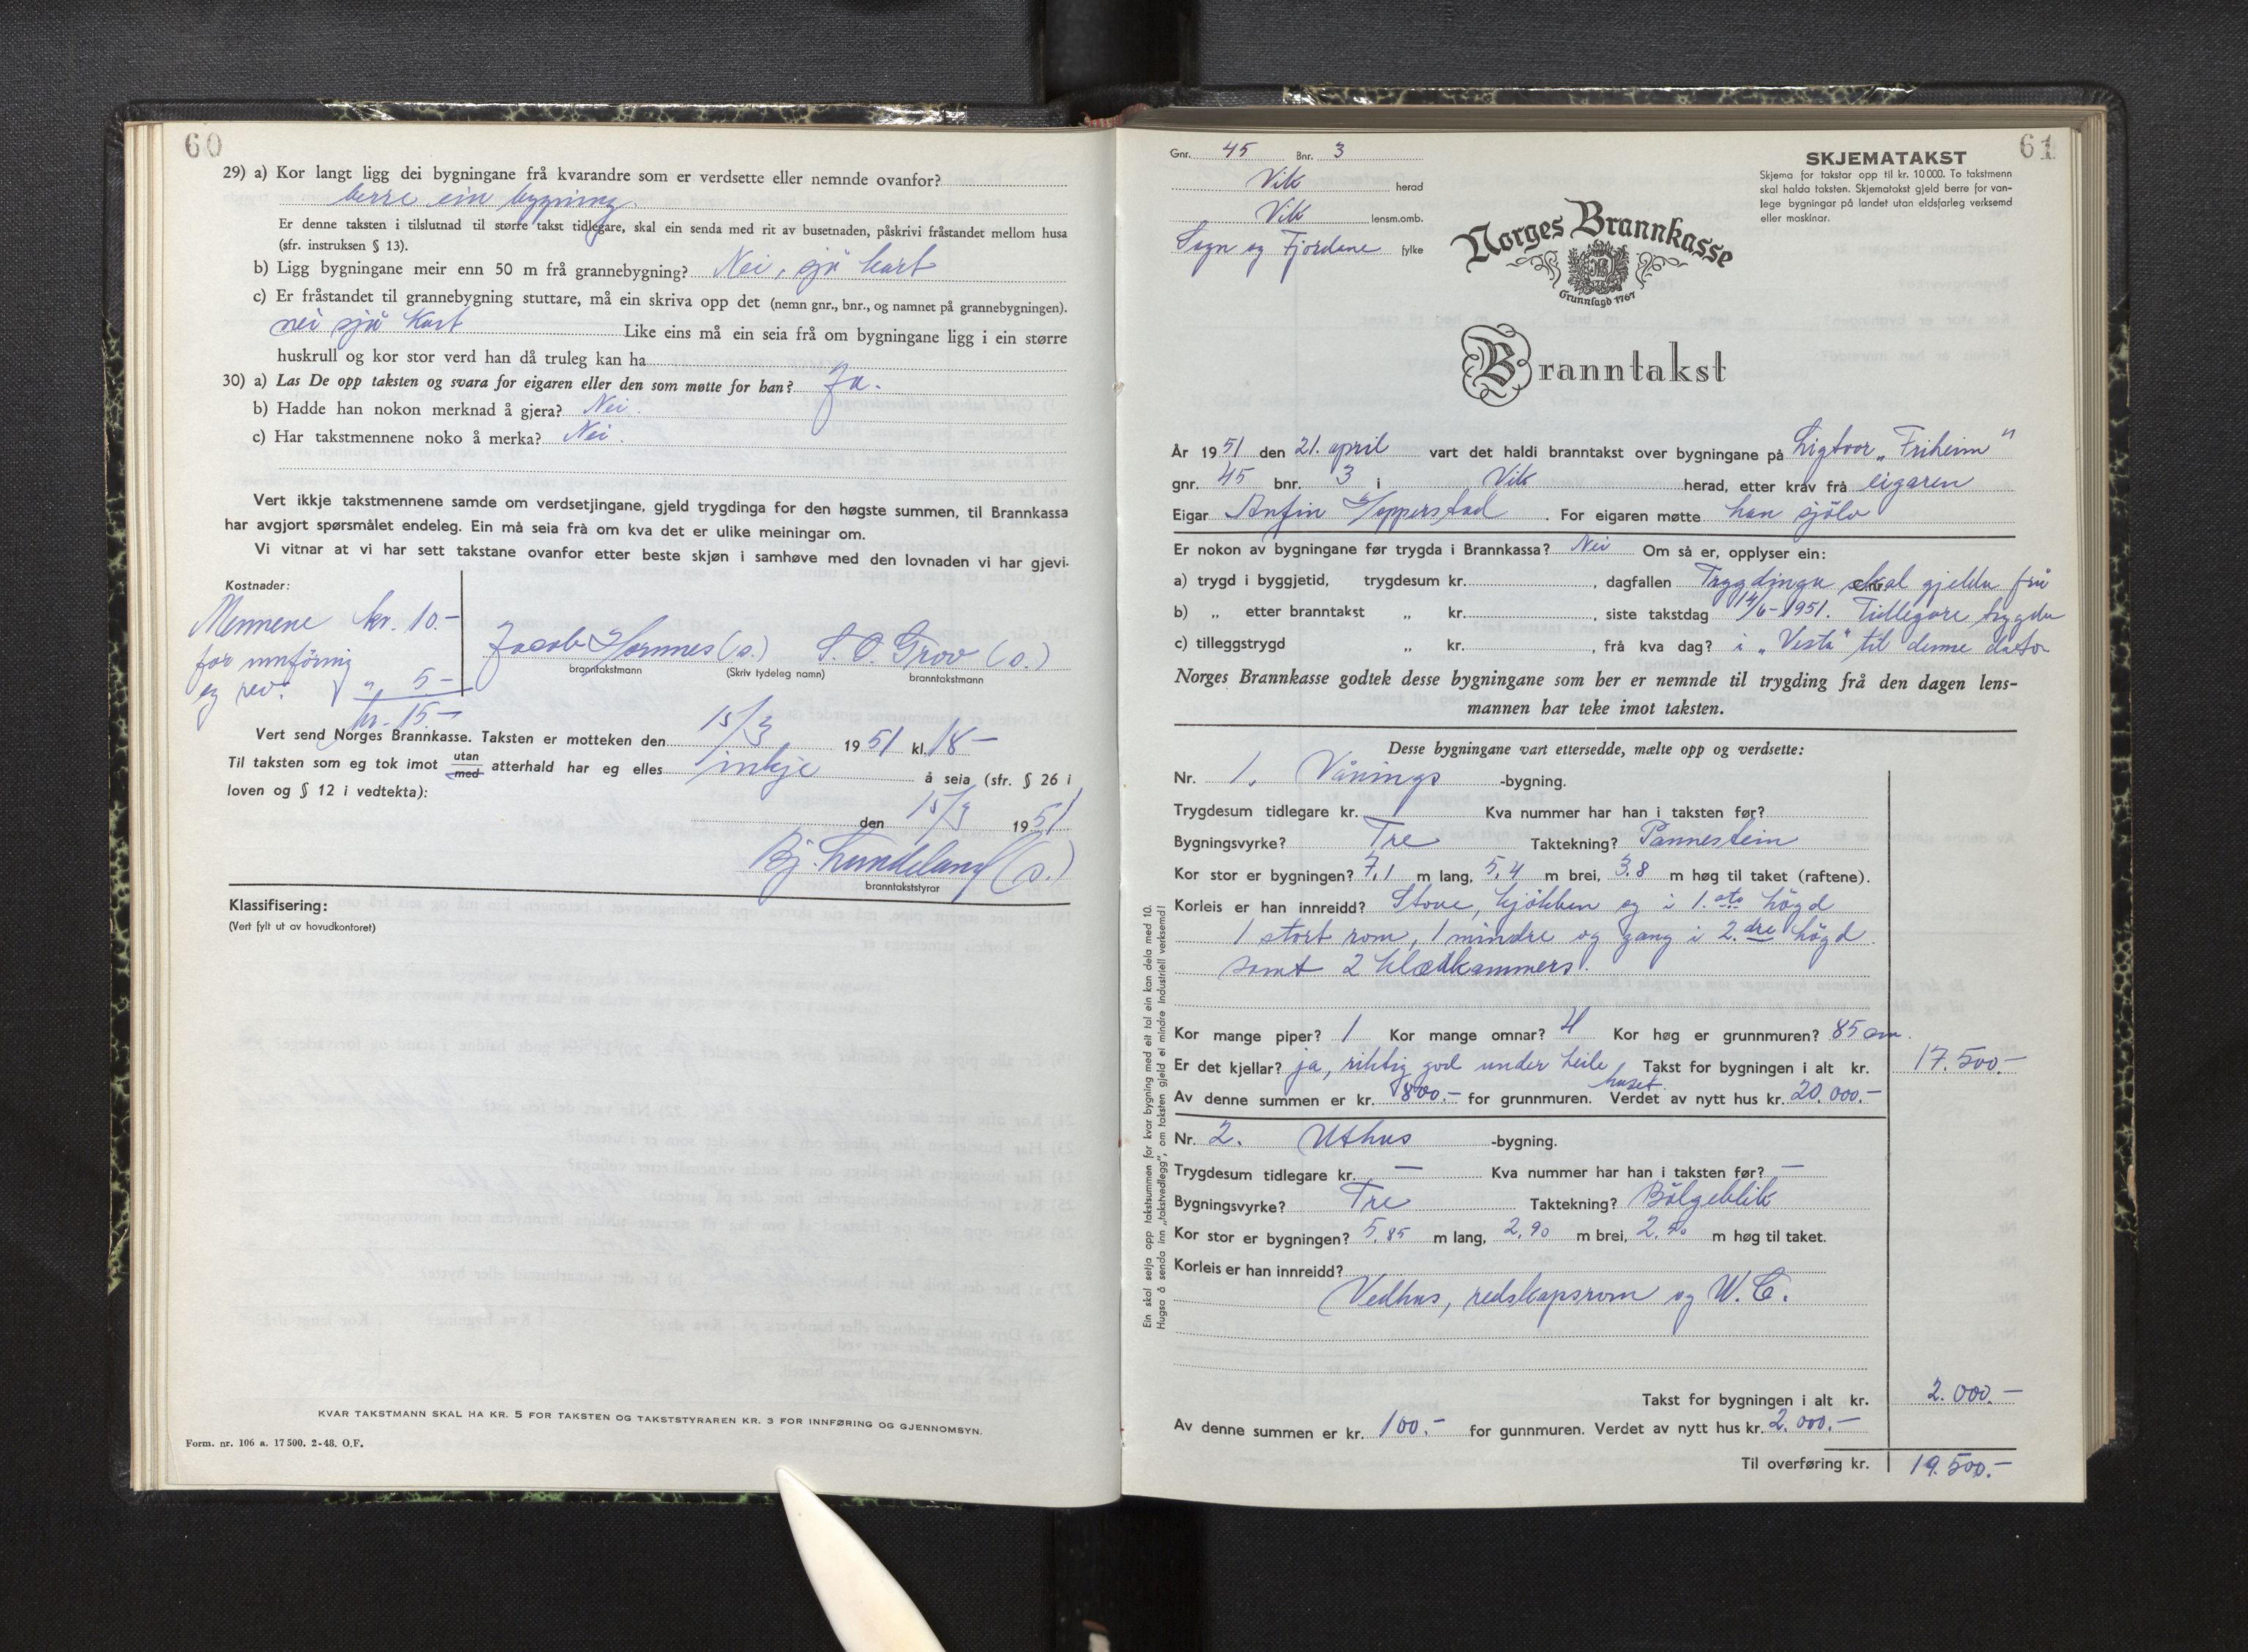 60
29) a) Kor langt ligg dei bygningane frå kvarandre som er verdsette eller nemnde ovanfor?
berre ein bygning.
Er denne taksten i tilslutnad til større takst tidlegare, skal ein senda med rit av busetnaden, påskrivi fråstandet mellom husa
(sfr. instruksen § 13).
b) Ligg bygningane meir enn 50 m frå grannebygning? Nei, sjå kart
c) Er fråstandet til grannebygning stuttare, må ein skriva opp det (nemn gnr., bnr., og namnet på grannebygningen).
nei sjå Kart Like eins må ein seia frå om bygningane ligg i ein større
huskrull og kor stor verd han då truleg kan ha
30) a) Las De opp taksten og svara for eigaren eller den som møtte for han? Ja.
b) Hadde han nokon merknad å gjera? Nei.
c) Har takstmennene noko å merka? Nei.
Vert ikkje takstmennene samde om verdsetjingane, gjeld trygdinga for den høgste summen, til Brannkassa
har avgjort spørsmålet endeleg. Ein må seia frå om kva det er ulike meiningar om.
Vi vitnar at vi har sett takstane ovanfor etter beste skjøn i samhøve med den lovnaden vi har gjevi.
Kostnader:
Mennene kr. 10.-
for innføring
og rev. " 5-
kr. 15.-
Jacob Hommes (s.) S. O. Grov (s.)
branntakstmann (Skriv tydeleg namn) branntakstmann
Vert send Norges Brannkasse. Taksten er motteken den 15/3 1951 kl. 18-
Til taksten som eg tok imot utan med atterhald har eg elles inkje å seia (sfr. § 26 i
loven og § 12 i vedtekta):
den 15/3 1951
Bj. Lundelang (s.)
branntakststyrar
Klassifisering:
(Vert fylt ut av hovudkontoret)
KVAR TAKSTMANN SKAL HA KR. 5 FOR TAKSTEN OG TAKSTSTYRAREN KR. 3 FOR INNFØRING OG GJENNOMSYN.
Form. nr. 106 a. 17 500. 2-48. O.F.
61
Gnr. 45 Bnr. 3
Vik herad
Vik lensm.omb.
Sogn og Fjordane fylke
SKJEMATAKST
Skjema for takstar opp til kr. 10 000. To takstmenn
skal halda taksten. Skjematakst gjeld berre for van-
lege bygningar på landet utan eldsfarleg verksemd
eller maskinar.
Norges Brannkasse
Grunnlagd 1767
Branntakst
År 1951 den 21. april vart det haldi branntakst over bygningane på Ligtvor „Friheim"
gnr. 45 bnr. 3 i Vik herad, etter krav frå eigaren
Eigar Anfin Hopperstad. For eigaren møtte han sjølv
Er nokon av bygningane før trygda i Brannkassa? Nei Om så er, opplyser ein:
a) trygd i byggjetid, trygdesum kr. , dagfallen Trygdinga skal gjelda frå
b) „ etter branntakst „ kr. , siste takstdag 14/6-1951. Tidlegare trygda
c) tilleggstrygd „ kr. , frå kva dag? i „Vesta" til denne dato
Norges Brannkasse godtek desse bygningane som her er nemnde til trygding frå den dagen lens-
mannen har teke imot taksten.
Desse bygningane vart ettersedde, mælte opp og verdsette:
Nr. 1. Vånings -bygning.
Trygdesum tidlegare kr. Kva nummer har han i taksten før?
Bygningsvyrke? Tre Taktekning? Pannestein
Kor stor er bygningen? 7,1 m lang, 5,4 m brei, 3,8 m høg til taket (raftene).
Korleis er han innreidd? Stove, kjökken og i 1.ste högd
1 stort rom, 1 mindre og gang i 2.dre högd.
samt 2 klædkammers.
Kor mange piper? 1 Kor mange omnar? 4 Kor høg er grunnmuren? 85 cm.
Er det kjellar? ja, riktig god under heile huset. Takst for bygningen i alt kr. 17.500.-
Av denne summen er kr. 800.- for grunnmuren. Verdet av nytt hus kr. 20.000.-
Nr. 2. Uthus -bygning.
Trygdesum tidlegare kr. — Kva nummer har han i taksten før? —
Bygningsvyrke? Tre Taktekning? Bölgeblik
Kor stor er bygningen? 5,85 m lang, 2,90 m brei, 2,50 m høg til taket.
Korleis er han innreidd?
Vedhus, redskapsrom og W.C.
Takst for bygningen i alt kr. 2.000.-
Av denne summen er kr. 100.- for gunnmuren. Verdet av nytt hus kr. 2.000.-
Til overføring kr. 19.500.-
Ein skal setja opp takstsummen for kvar bygning med eit tal ein kan dela med 10.
Hugsa å senda inn „takstvedlegg", om taksten gjeld ei mindre industriell verksemd!